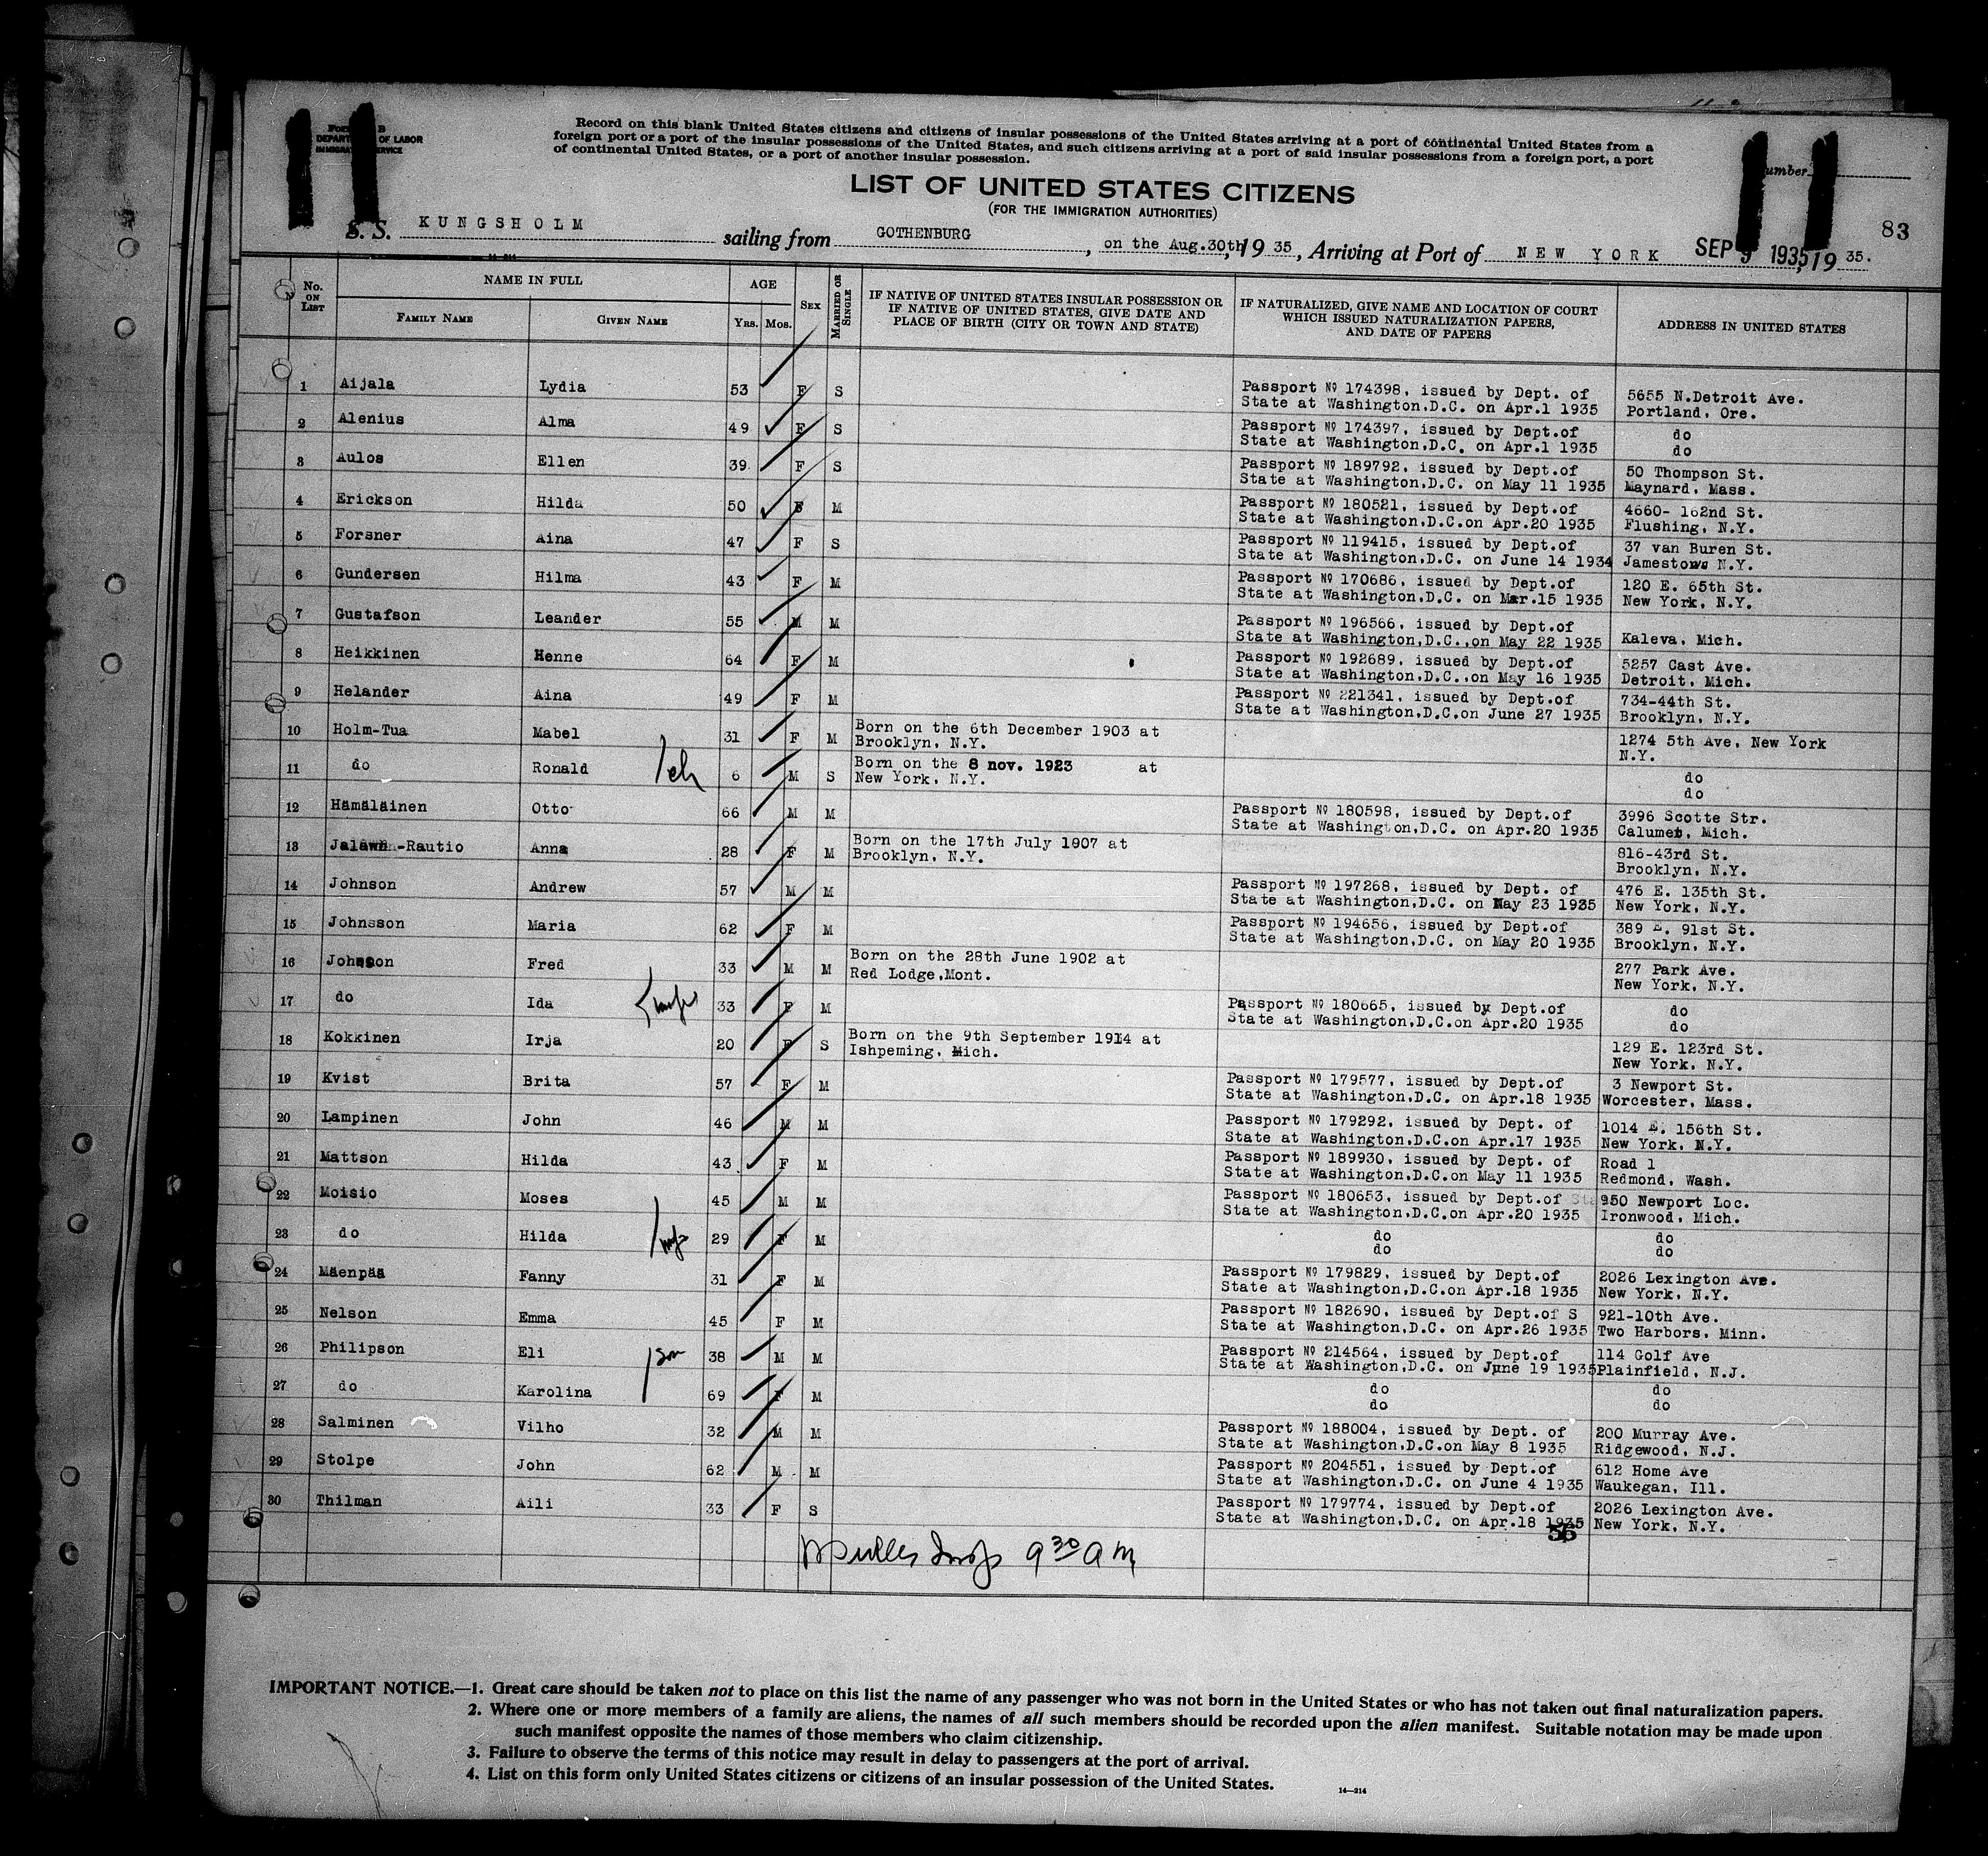 Form B
DEPARTMENT OF LABOR
IMMIGRATION SERVICE
Record on this blank United States citizens and citizens of insular possessions of the United States arriving at a port of continental United States from a
foreign port or a port of the insular possessions of the United States, and such citizens arriving at a port of said insular possessions from a foreign port, a port
of continental United States, or a port of another insular possession.
11
11
umber
LIST OF UNITED STATES CITIZENS
(FOR THE IMMIGRATION AUTHORITIES)
83
S. S. KUNGSHOLM sailing from GOTHENBURG, on the Aug.30th, 19 35, Arriving at Port of NEW YORK SEP 9 1935, 19 35.
No. ON LIST
NAME IN FULL
FAMILY NAME
GIVEN NAME
AGE
YRS. MOS.
SEX
MARRIED OR SINGLE
IF NATIVE OF UNITED STATES INSULAR POSSESSION OR
IF NATIVE OF UNITED STATES, GIVE DATE AND
PLACE OF BIRTH (CITY OR TOWN AND STATE)
IF NATURALIZED, GIVE NAME AND LOCATION OF COURT
WHICH ISSUED NATURALIZATION PAPERS,
AND DATE OF PAPERS
ADDRESS IN UNITED STATES
1 Aijala Lydia 53 F S Passport № 174398, issued by Dept. of 5655 N.Detroit Ave.
State at Washington,D.C. on Apr.1 1935 Portland, Ore.
2 Alenius Alma 49 F S Passport № 174397, issued by Dept.of do
State at Washington,D.C. on Apr.1 1935 do
3 Aulos Ellen 39 F S Passport № 189792, issued by Dept.of 50 Thompson St.
State at Washington,D.C. on May 11 1935 Maynard, Mass.
4 Erickson Hilda 50 F M Passport № 180521, issued by Dept.of 4660- 162nd St.
State at Washington,D.C.on Apr.20 1935 Flushing, N.Y.
5 Forsner Aina 47 F S Passport № 119415, issued by Dept.of 37 van Buren St.
State at Washington,D.C. on June 14 1934 Jamestown N.Y.
6 Gundersen Hilma 43 F M Passport № 170686, issued by Dept.of 120 E. 65th St.
State at Washington,D.C. on Mar.15 1935 New York, N.Y.
7 Gustafson Leander 55 M M Passport № 196566, issued by Dept.of
State at Washington,D.C.,on May 22 1935 Kaleva, Mich.
8 Heikkinen Henne 64 F M Passport № 192689, issued by Dept.of 5257 Cast Ave.
State at Washington,D.C.,on May 16 1935 Detroit, Mich.
9 Helander Aina 49 F M Passport № 221341, issued by Dept.of 734-44th St.
State at Washington,D.C.on June 27 1935 Brooklyn, N.Y.
10 Holm-Tua Mabel 31 F M Born on the 6th December 1903 at 1274 5th Ave, New York
Brooklyn, N.Y. N.Y.
11 do Ronald 6 M S Born on the 8 nov. 1923 at do
New York, N.Y. do
12 Hämäläinen Otto 66 M M Passport № 180598, issued by Dept.of 3996 Scotte Str.
State at Washington,D.C. on Apr.20 1935 Calumet, Mich.
13 -Rautio Anna 28 F M Born on the 17th July 1907 at 816-43rd St.
Brooklyn, N.Y. Brooklyn, N.Y.
14 Johnson Andrew 57 M M Passport № 197268, issued by Dept. of 476 E. 135th St.
State at Washington,D.C. on May 23 1935 New York, N.Y.
15 Johnsson Maria 62 F M Passport № 194656, issued by Dept.of 389 E. 91st St.
State at Washington,D.C. on May 20 1935 Brooklyn, N.Y.
16 Johnson Fred 33 M M Born on the 28th June 1902 at 277 Park Ave.
Red Lodge,Mont. New York, N.Y.
17 do Ida 33 F M Passport № 180665, issued by Dept.of do
State at Washington,D.C.on Apr.20 1935 do
18 Kokkinen Irja 20 F S Born on the 9th September 1914 at 129 E. 123rd St.
Ishpeming, Mich. New York, N.Y.
19 Kvist Brita 57 F M Passport № 179577, issued by Dept.of 3 Newport St.
State at Washington,D.C. on Apr.18 1935 Worcester, Mass.
20 Lampinen John 46 M M Passport № 179292, issued by Dept. of 1014 E. 156th St.
State at Washington,D.C.on Apr.17 1935 New York, N.Y.
21 Mattson Hilda 43 F M Passport № 189930, issued by Dept. of Road 1
State at Washington,D.C.on May 11 1935 Redmond, Wash.
22 Moisio Moses 45 M M Passport № 180653, issued by Dept.of 950 Newport Loc.
State at Washington,D.C.on Apr.20 1935 Ironwood, Mich.
23 do Hilda 29 F M do do
do do
24 Mäenpää Fanny 31 F M Passport № 179829, issued by Dept.of 2026 Lexington Ave.
State at Washington,D.C.on Apr.18 1935 New York, N.Y.
25 Nelson Emma 45 F M Passport № 182690, issued by Dept.of S 921-10th Ave.
State at Washington,D.C. on Apr.26 1935 Two Harbors, Minn.
26 Philipson Eli son 38 M M Passport № 214564, issued by Dept.of 114 Golf Ave
State at Washington,D.C. on June 19 1935 Plainfield, N.J.
27 do Karolina 69 F M do do
do do
28 Salminen Vilho 32 M M Passport № 188004, issued by Dept. of 200 Murray Ave.
State at Washington,D.C.on May 8 1935 Ridgewood, N.J.
29 Stolpe John 62 M M Passport № 204551, issued by Dept.of 612 Home Ave
State at Washington,D.C. on June 4 1935 Waukegan, Ill.
30 Thilman Aili 33 F S Passport № 179774, issued by Dept.of 2026 Lexington Ave.
State at Washington,D.C. on Apr.18 1935 New York, N.Y.
56
9 30 a m
IMPORTANT NOTICE.—1. Great care should be taken not to place on this list the name of any passenger who was not born in the United States or who has not taken out final naturalization papers.
2. Where one or more members of a family are aliens, the names of all such members should be recorded upon the alien manifest. Suitable notation may be made upon
such manifest opposite the names of those members who claim citizenship.
3. Failure to observe the terms of this notice may result in delay to passengers at the port of arrival.
4. List on this form only United States citizens or citizens of an insular possession of the United States.
14—214